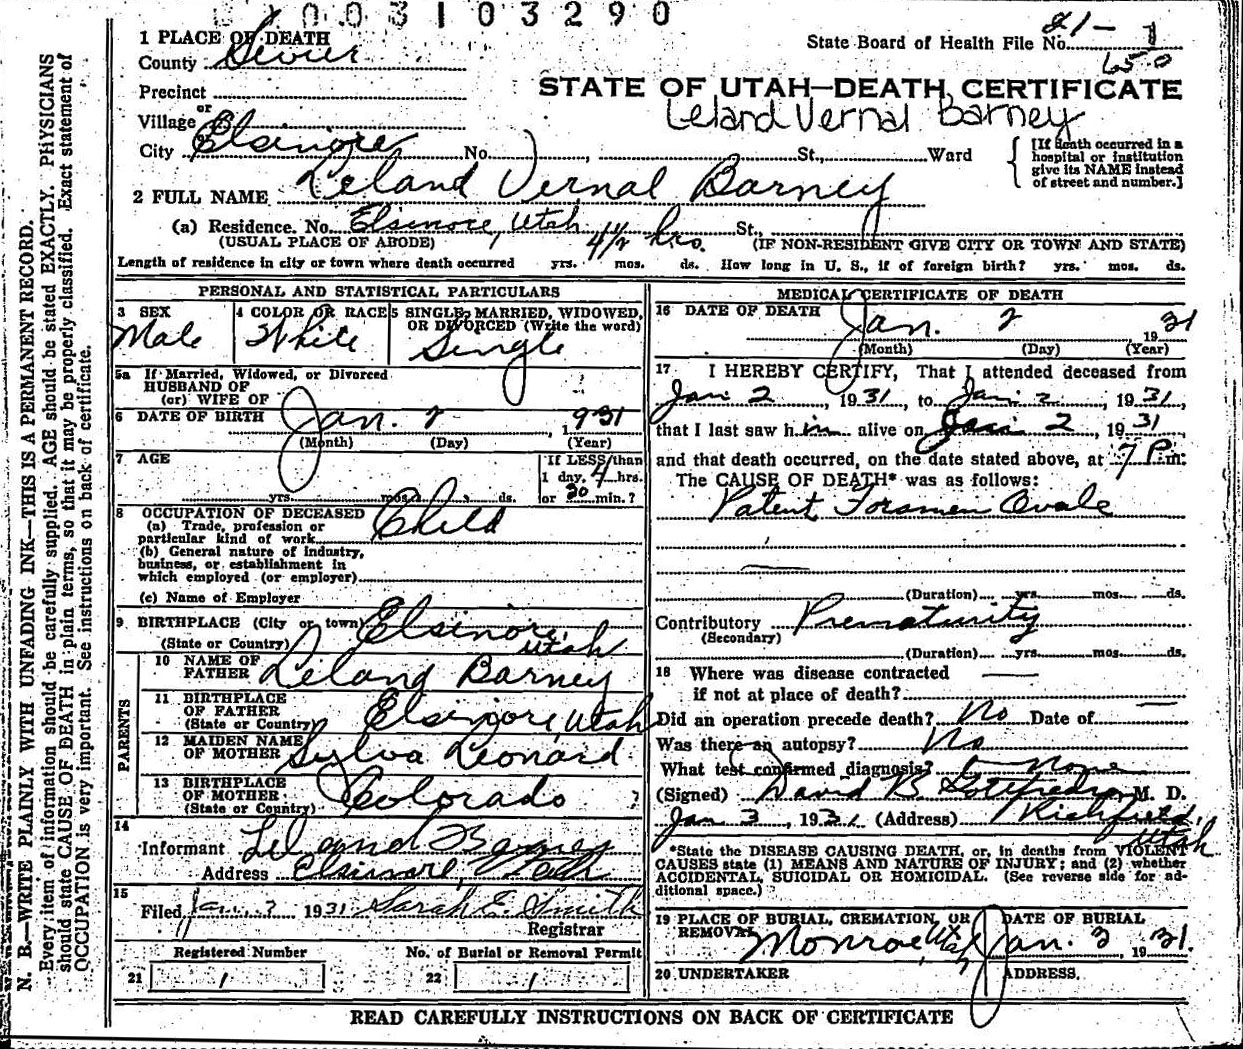 1003103290
1 PLACE OF DEATH
County Sevier
State Board of Health File No. 81-1
650
Precinct
STATE OF UTAH—DEATH CERTIFICATE
or
Village
Leland Vernal Barney
or
City Elsinore No. St., Ward
[If death occurred in a hospital or institution give its NAME instead of street and number.]
2 FULL NAME Leland Vernal Barney
(a) Residence. No. Elsinore, Utah St.,
(USUAL PLACE OF ABODE) (IF NON-RESIDENT GIVE CITY OR TOWN AND STATE)
4 1/2 hrs.
Length of residence in city or town where death occurred yrs. mos. ds. How long in U. S., if of foreign birth? yrs. mos. ds.
PERSONAL AND STATISTICAL PARTICULARS
3 SEX
Male
4 COLOR OR RACE
White
5 SINGLE, MARRIED, WIDOWED, OR DIVORCED (Write the word)
Single
5a If Married, Widowed, or Divorced
HUSBAND OF
(or) WIFE OF
6 DATE OF BIRTH Jan. 2, 1931
(Month) (Day) (Year)
7 AGE
yrs. mos. ds.
If LESS than
1 day, 4 hrs.
or 30 min.?
8 OCCUPATION OF DECEASED
(a) Trade, profession or particular kind of work Child
(b) General nature of industry, business, or establishment in which employed (or employer)
(c) Name of Employer
9 BIRTHPLACE (City or town) Elsinore,
(State or Country) Utah
PARENTS
10 NAME OF FATHER Leland Barney
11 BIRTHPLACE OF FATHER (State or Country) Elsinore, Utah
12 MAIDEN NAME OF MOTHER Sylva Leonard
13 BIRTHPLACE OF MOTHER (State or Country) Colorado
14
Informant Leland Barney
Address Elsinore, Utah
15
Filed Jan. 3 1931 Sarah E. Smith
Registrar
Registered Number
21 1
No. of Burial or Removal Permit
22 1
MEDICAL CERTIFICATE OF DEATH
16 DATE OF DEATH Jan. 2 1931
(Month) (Day) (Year)
17 I HEREBY CERTIFY, That I attended deceased from
Jan 2, 1931, to Jan 2, 1931,
that I last saw him alive on Jan 2, 1931
and that death occurred, on the date stated above, at 7 P.m.
The CAUSE OF DEATH* was as follows:
Patent Foramen Ovale
(Duration) yrs. mos. ds.
Contributory Prematurity
(Secondary)
(Duration) yrs. mos. ds.
18 Where was disease contracted
if not at place of death?
Did an operation precede death? No Date of
Was there an autopsy? No
What test confirmed diagnosis? none
(Signed) David B. Gottfredson M. D.
Jan 3, 1931 (Address) Richfield,
Utah
*State the DISEASE CAUSING DEATH, or, in deaths from VIOLENT
CAUSES state (1) MEANS AND NATURE OF INJURY; and (2) whether
ACCIDENTAL, SUICIDAL OR HOMICIDAL. (See reverse side for ad-
ditional space.)
19 PLACE OF BURIAL, CREMATION, OR REMOVAL
Monroe, Utah
DATE OF BURIAL
Jan. 3, 1931.
20 UNDERTAKER ADDRESS.
READ CAREFULLY INSTRUCTIONS ON BACK OF CERTIFICATE
N. B.—WRITE PLAINLY WITH UNFADING INK—THIS IS A PERMANENT RECORD.
Every item of information should be carefully supplied. AGE should be stated EXACTLY. PHYSICIANS
should state CAUSE OF DEATH in plain terms, so that it may be properly classified. Exact statement of
OCCUPATION is very important. See instructions on back of certificate.